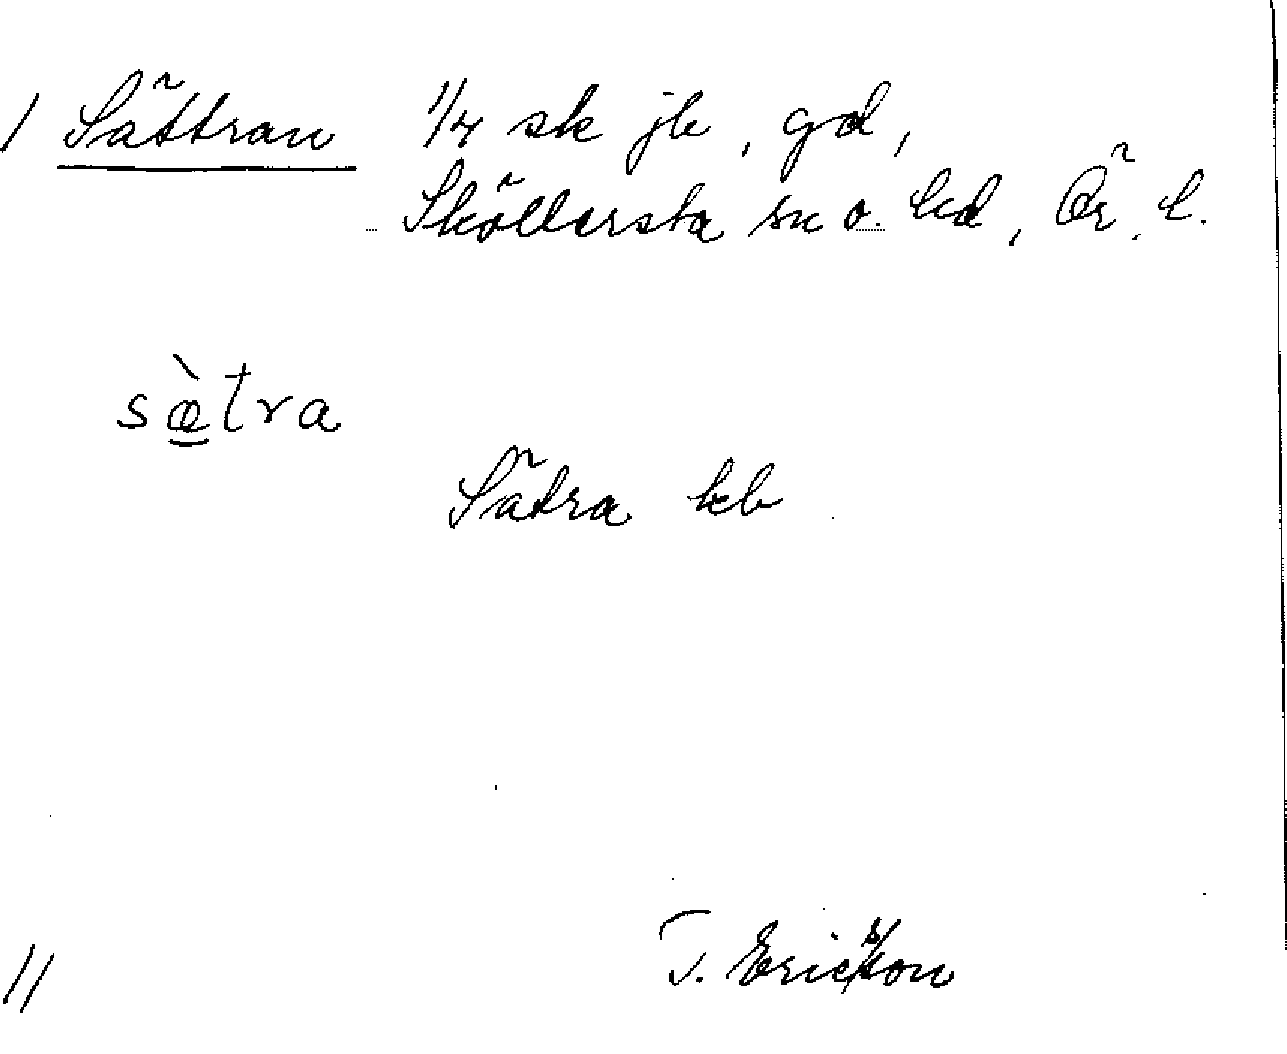 / Sättran 1/4 sk jb, gd,
Sköllersta sn o. hd, Ör. l.
sæ̀tra
Sätra kb
T. Ericsson
//